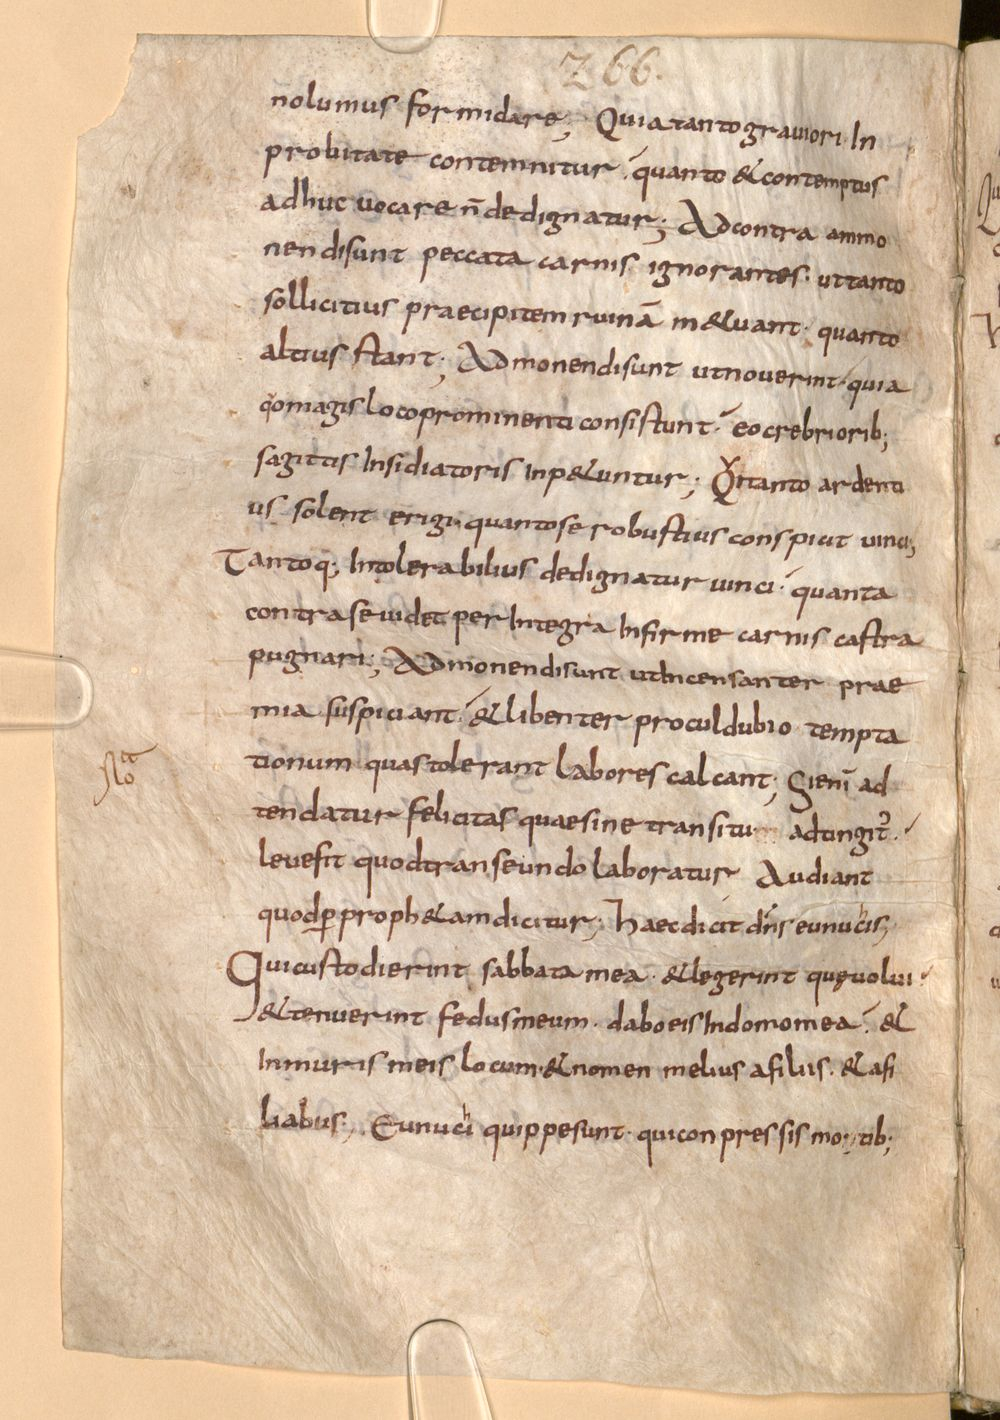 266.
nolumus formidare; Quia tanto grauiori In
probitate contemnitur. quanto & contemptus
adhuc uocare n̄ dedignatur; Ad contra ammo
nendi sunt peccata carnis ignorantes. ut tanto
sollicitius praecipitem ruinā m&uant. quanto
altius stant; Admonendi sunt ut nouerint. quia
qͦ magis loco prominenti consistunt. eo crebriorib;
sagittis Insidiatoris Inp&untur; Qͥ tanto ardenti
us solent erigi. quanto se robustius conspicit uinci;
Tantoq; Intolerabilius dedignatur uinci. quanta
contra se uidet per Integra Infirme carnis castra
pugnari; Admonendi sunt ut Incensanter prae
mia suspiciant. & libenter procul dubio tempta
tionum quas tolerant labores calcant; Si enī ad
Noͭᵃ
tendatur felicitas quae sine transitu adtingit᷑.
leue fit quod transeundo laboratur Audiant
quod ꝑ proph&am dicitur; Haec dicit dn̄s eunuchis;
Qui custodierint sabbata mea. & legerint quę uolui.
& tenuerint fedus meum. dabo eis In domo mea. &
In muris meis locum. & nomen melius a filiis. & a fi
liabus; Eunuchi quippe sunt. qui conpressis motib;